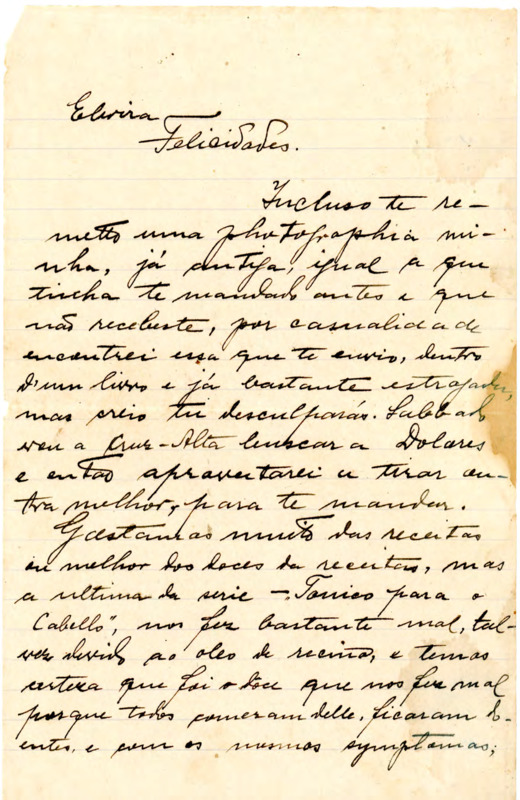 Elvira
Felicidades.
Incluso te re-
metto uma photographia mi-
nha, já antiga, igual a que
tinha te mandado antes e que
não recebeste, por casualidade
encontrei essa que te envio, dentro
d'um livro e já bastante estragada,
mas creio tu desculparás. Sabbado
vou a Cruz-Alta buscar a Dolores
e então aproveitarei a tirar ou-
tra melhor, para te mandar.
Gostamos muito das receitas
ou melhor dos doces da receitas, mas
a ultima da serie - Tonico para o
Cabello", nos fez bastante mal, tal-
vez devido ao oleo de recino, e temos
certeza que foi o doce que nos fez mal
porque todos comeram delle, ficaram do-
entes, e com os mesmos symptomas;